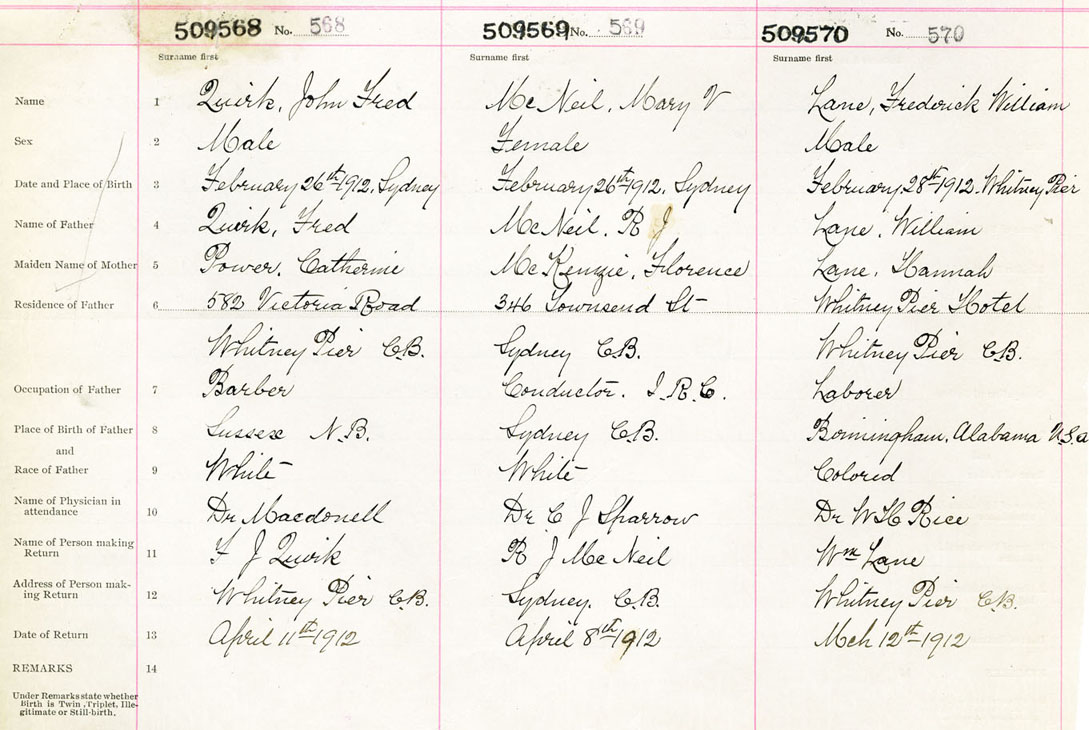 509568 No. 568 509569 No. 569 509570 No. 570
Surname first Surname first Surname first
Name 1 Quirk, John Fred McNeil, Mary V Lane, Frederick William
Sex 2 Male Female Male
Date and Place of Birth 3 February 26th 1912. Sydney February 26th 1912, Sydney February, 28th 1912. Whitney Pier
Name of Father 4 Quirk, Fred McNeil. R J Lane, William
Maiden Name of Mother 5 Power, Catherine McKenzie, Florence Lane, Hannah
Residence of Father 6 582 Victoria Road 346 Townsend St Whitney Pier Hotel
Whitney Pier C.B. Sydney C.B. Whitney Pier C.B.
Occupation of Father 7 Barber Conductor. I.R.C. Laborer
Place of Birth of Father 8 Sussex N.B. Sydney C.B. Birmingham, Alabama U.S.a
and
Race of Father 9 White White Colored
Name of Physician in
attendance 10 Dr Macdonell Dr C J Sparrow Dr W H Rice
Name of Person making
Return 11 F J Quirk R J McNeil Wm Lane
Address of Person mak-
ing Return 12 Whitney Pier C.B. Sydney. C.B. Whitney Pier C.B.
Date of Return 13 April 11th 1912 April 8th 1912 Mch 12th 1912
REMARKS 14
Under Remarks state whether
Birth is Twin, Triplet, Ille-
gitimate or Still-birth.